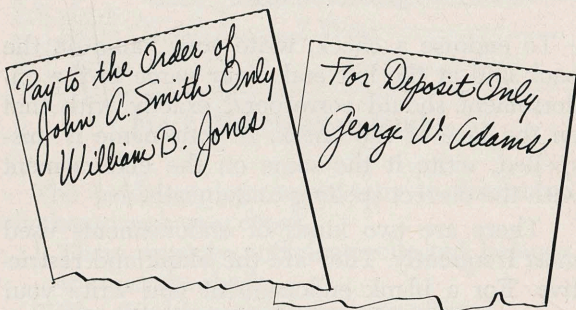 Pay to the Order of
John A. Smith Only
William B. Jones
For Deposit Only
George W. Adams